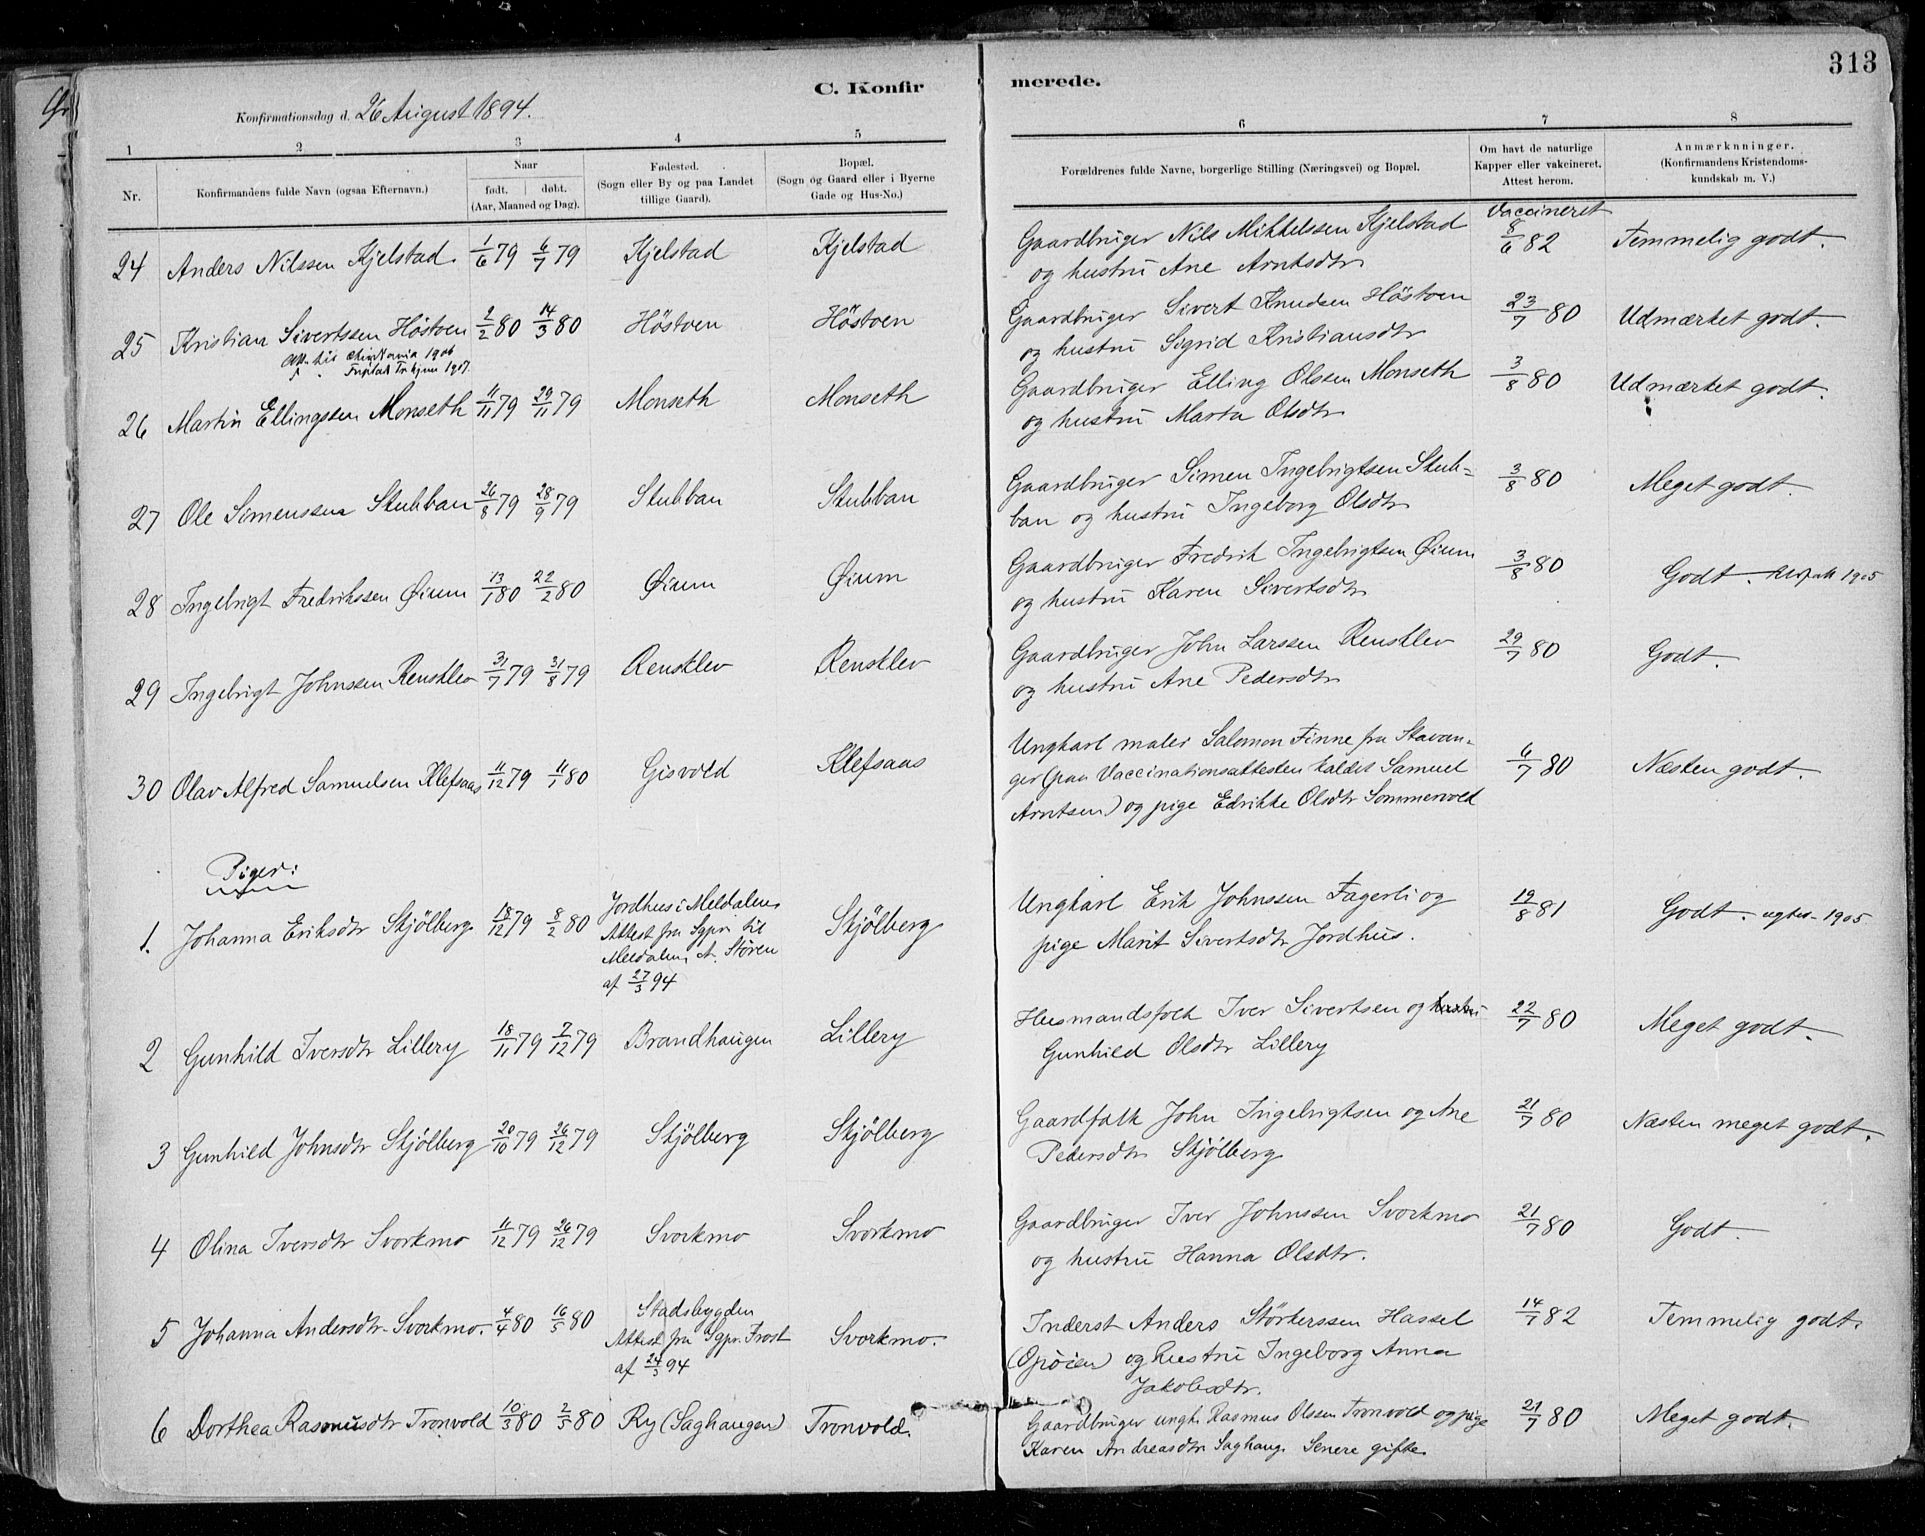 313
C. Konfir merede.
Konfirmationsdag d. 26 August 1894.
1 2 3 4 5 6 7 8
Nr.
Konfirmandens fulde Navn (ogsaa Efternavn.)
Naar
født. døbt.
(Aar, Maaned og Dag).
Fødested.
(Sogn eller By og paa Landet
tillige Gaard).
Bopæl.
(Sogn og Gaard eller i Byerne
Gade og Hus-No.)
Forældrenes fulde Navne, borgerlige Stilling (Næringsvei) og Bopæl.
Om havt de naturlige
Kapper eller vakcineret.
Attest herom.
Anmærkninger.
(Konfirmandens Kristendoms-
kundskab m. V.)
Vaccineret
24 Anders Nilssen Kjelstad. 1/6 79 6/7 79 Kjelstad Kjelstad Gaardbruger Nils Mikkelssen Kjelstad 8/6 82 Temmelig godt.
og hustru Ane Arntsdtr
25 Kristian Sivertssen Höstoen 2/2 80 14/3 80 Höstoen Höstoen Gaardbruger Sivert Knudsen Höstoen 23/7 80 Udmærket godt.
og hustru Sigrid Kristiansdtr
Att. til 1906
1907.
26 Martin Ellingssen Monseth 11/11 79 29/11 79 Monseth Monseth Gaardbruger Elling Olssen Monseth 3/8 80 Udmærket godt.
og hustru Marta Olsdtr
27 Ole Simenssen Stubban 26/8 79 28/9 79 Stubban Stubban Gaardbruger Simen Ingebrigtsen Stub-
3/8 80 Meget godt.
ban og hustru Ingeborg Olsdtr
28 Ingebrigt Fredrikssen Øium 13/1 80 22/2 80 Øium Øium Gaardbruger Fredrik Ingebrigtsen Øium 3/8 80 Godt. 1905
og hustru Karen Sivertsdtr
29 Ingebrigt Johnssen Rensklev 31/7 79 31/8 79 Rensklev Rensklev Gaardbruger John Larssen Rensklev 29/7 80 Godt.
og hustru Ane Pedersdtr
30 Olav Alfred Samuelsen Klefsaas 11/12 79 11/1 80 Gisvold Klefsaas Ungkarl maler Salomon Finne fra Stavan-
ger (paa Vaccinationsattesten kaldet Samuel 6/7 80 Næsten godt.
Arntsen) og pige Edrikke Olsdtr Sommervold
Piger:
1. Johanna Eriksdtr Skjölberg 18/12 79 8/2 80 Jordhus i Meldalen. Skjölberg Ungkarl Erik Johnssen Fagerli og 19/8 81 Godt. 1905
Attest fra Sgpr. til
Meldalen, A. Støren
af 27/3 94
pige Marit Sivertsdtr Jordhus.
2 Gunhild Iversdtr Lillery 18/11 79 7/12 79 Brandhaugen Lillery Husmandsfolk Iver Sivertsen og hustru 22/7 80 Meget godt.
Gunhild Olsdtr Lillery
3 Gunhild Johnsdtr Skjölberg 20/10 79 26/12 79 Skjölberg Skjölberg Gaardfolk John Ingebrigtsen og Ane 21/7 80 Næsten meget godt.
Pedersdtr Skjölberg
4 Olina Iversdtr Svorkmo 11/12 79 26/12 79 Svorkmo Svorkmo Gaardbruger Iver Johnssen Svorkmo 21/7 80 Godt.
og hustru Hanna Olsdtr.
5 Johanna Andersdtr Svorkmo. 4/4 80 16/5 80 Stadsbygden Svorkmo. Inderst Anders Störkerssen Hassel 14/7 82 Temmelig godt.
Attest fra Sgpr. Frost
af 24/3 94
(Opöien) og hustru Ingeborg Anna
Jakobsdtr.
6 Dorthea Rasmusdtr Tronvold 10/3 80 2/5 80 Ry (Saghaugen) Tronvold. Gaardbruger ungk. Rasmus Olssen Tronvold og pige 21/7 80 Meget godt.
Karen Andreasdtr Saghaug. Senere gifte.